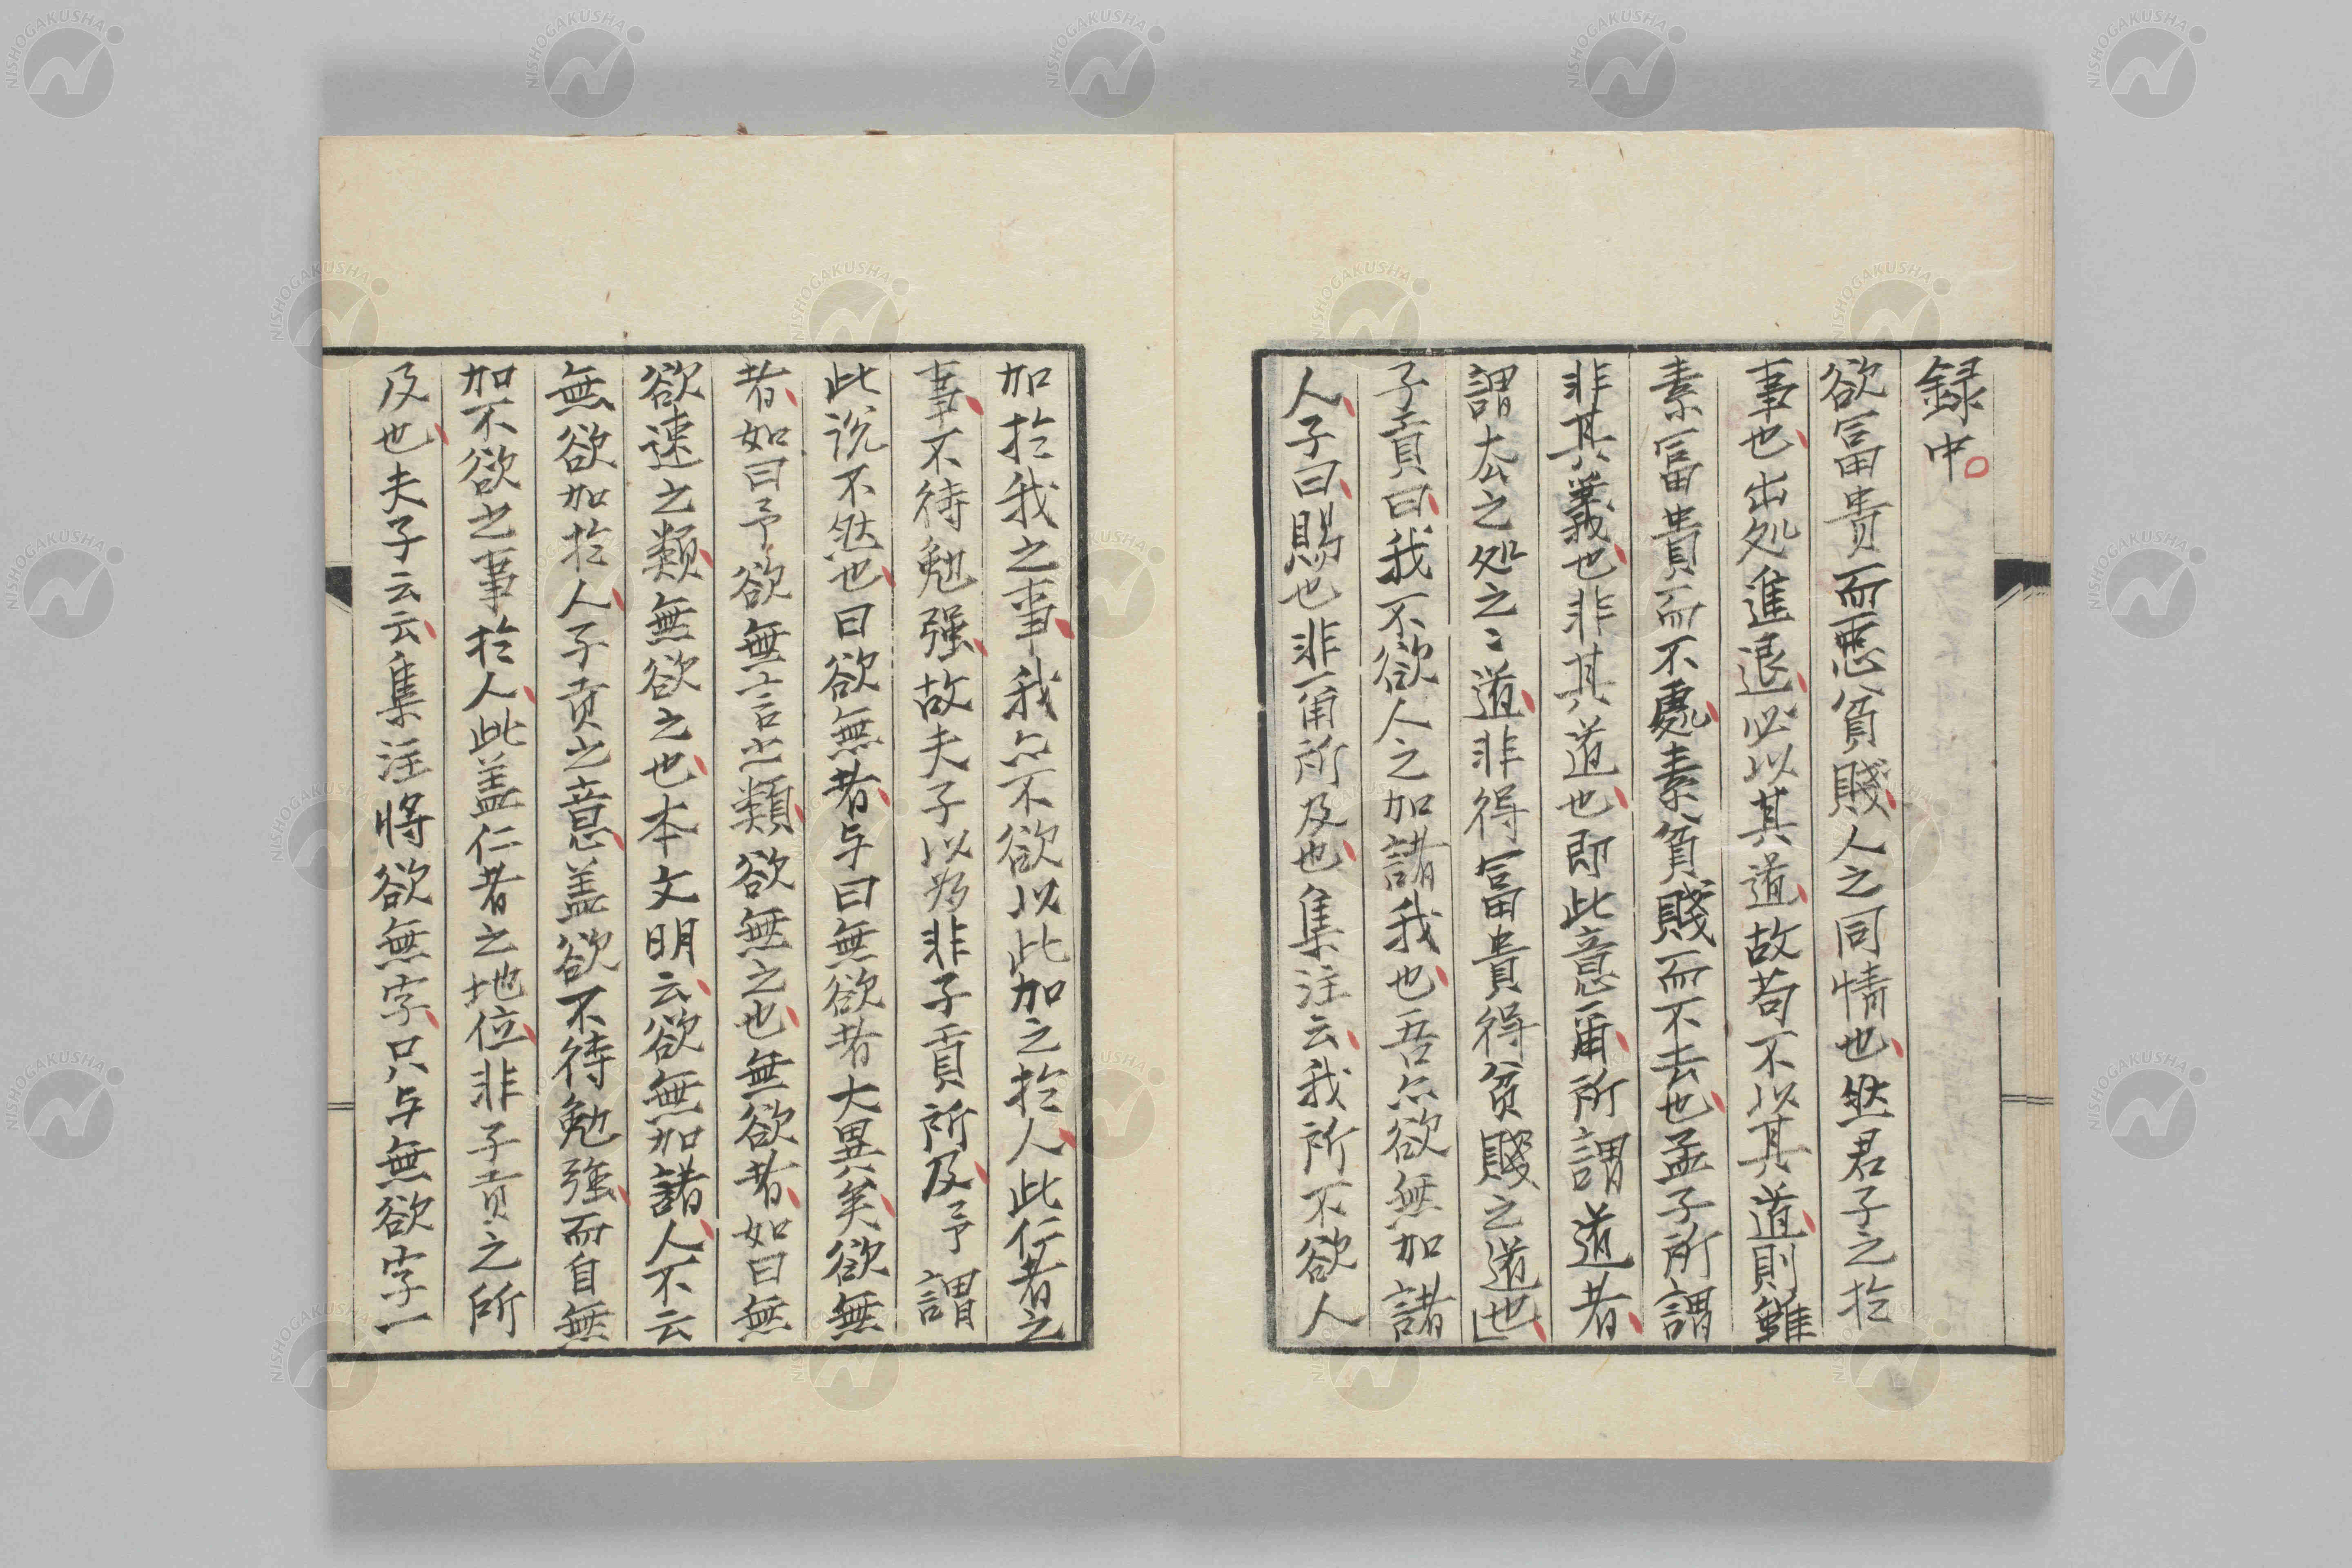 録中
欲冨貴而悪貧賤人之同情也然君子之於
事也出処進退必以其道故苟不以其道則雖
素冨貴而不處素貧賤而不去也孟子所謂
非其義也非其道也即此意甬所謂道者
謂太公之処之〻道非得冨貴得貧賤之道也
子貢曰我不欲人之加諸我也吾亦欲無加諸
人子曰賜也非甬所及也集注云我所不欲人
加於我之事我亦不欲以此加之於人此仁者之
事不待勉强故夫子以為非子貢所及予謂
此说不然也曰欲無者与曰無欲者大異矣欲無
者如曰予欲無言之類欲無之也無欲者如曰無
欲速之類無欲之也本文明云欲無加諸人不云
無欲加於人子貢之意盖欲不待勉強而自無
加不欲之事於人此盖仁者之地位非子貢之所
及也夫子云云集注将欲無字只与無欲字一
NISHOGAKUSHA